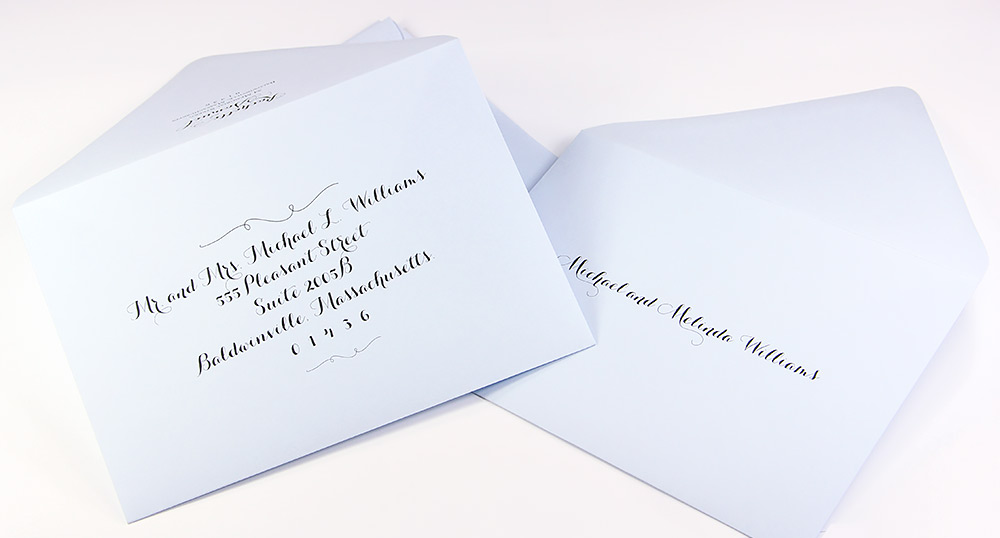 Mr. and Mrs. Michael L. Williams
555 Pleasant Street
Suite 2005B
Baldwinville, Massachusetts.
0 1 4 3 6
Michael and Melinda Williams